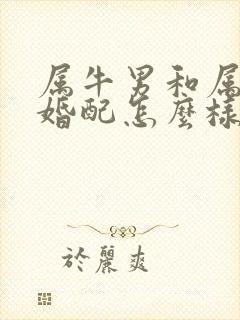 属牛男和属
婚配怎麼樣
於麗爽